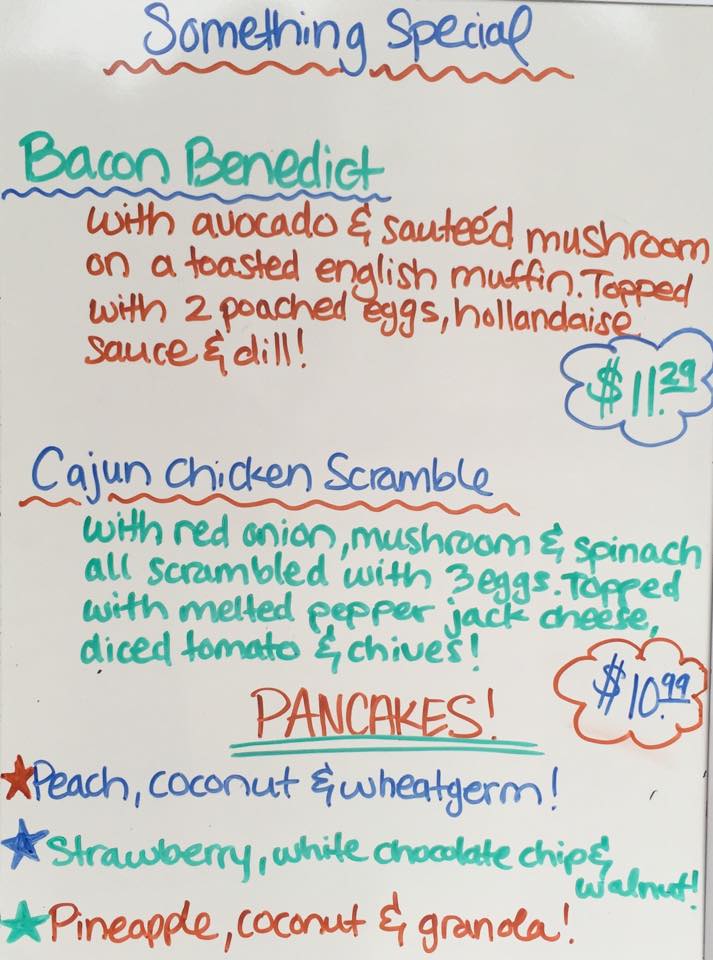 Something Special
Bacon Benedict
with avocado & sauteé'd mushroom
on a toasted english muffin. Topped
with 2 poached eggs, hollandaise
sauce & dill!
$11.29
Cajun Chicken Scramble
with red onion, mushroom & spinach
all scrambled with 3 eggs. Topped
with melted pepper jack cheese,
diced tomato & chives!
$10.99
PANCAKES!
Peach, coconut & wheatgerm!
Strawberry, white chocolate chip &
walnut!
Pineapple, coconut & granola!